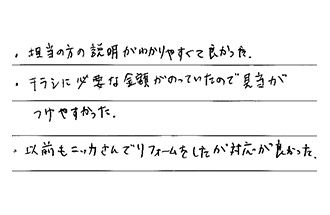 ・担当の方の説明がわかりやすくて良かった.
・チラシに必要な金額がのっていたので見当が
つけやすかった.
・以前もニッカさんでリフォームをしたが対応が良かった.